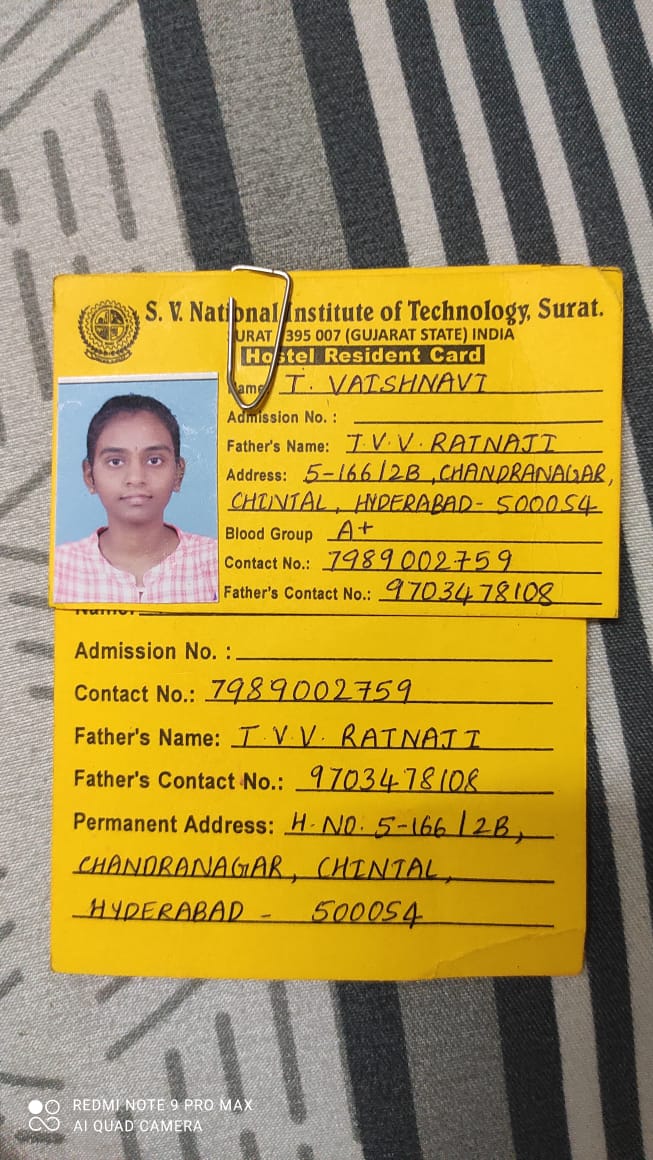 S. V. National Institute of Technology, Surat.
SURAT 395 007 (GUJARAT STATE) INDIA
Hostel Resident Card
Name T. VAISHNAVI
Admission No. :
Father's Name: T.V.V. RATNAJI
Address: 5-166/2B, CHANDRANAGAR,
CHINTAL, HYDERABAD- 500054
Blood Group A+
Contact No.: 7989002759
Father's Contact No.: 9703478108
Name:
Admission No. :
Contact No.: 7989002759
Father's Name: T.V.V. RATNAJI
Father's Contact No.: 9703478108
Permanent Address: H.NO: 5-166/2B,
CHANDRANAGAR, CHINTAL,
HYDERABAD - 500054
REDMI NOTE 9 PRO MAX
AI QUAD CAMERA